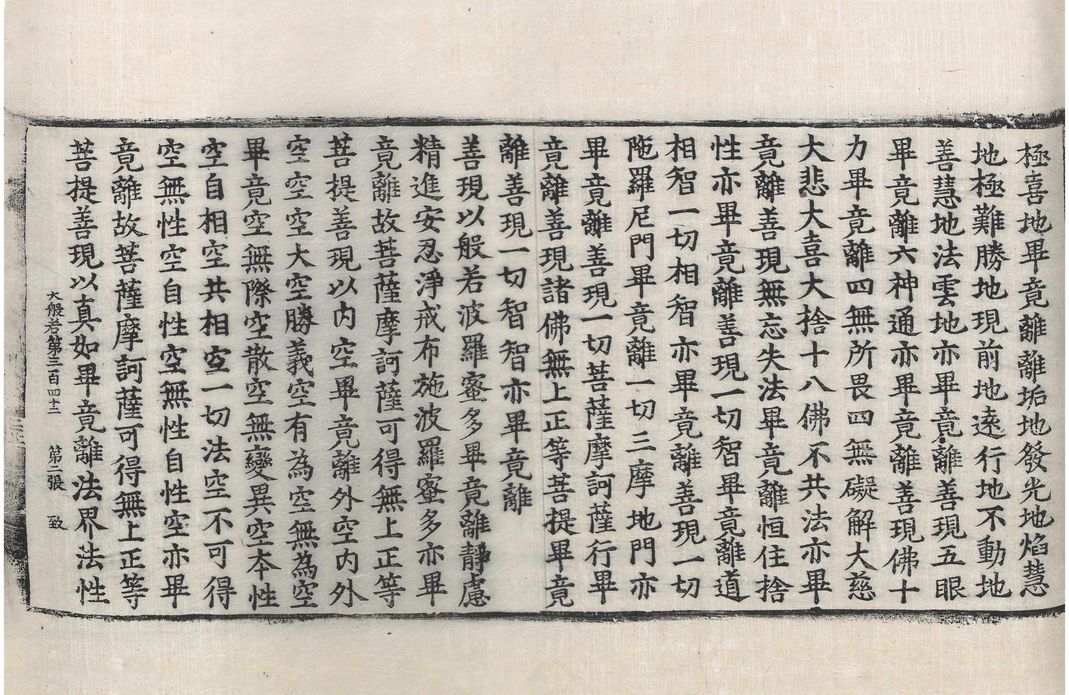 極喜地畢竟離離垢地發光地焰慧
地極難勝地現前地遠行地不動地
善慧地法雲地亦畢竟離善現五眼
畢竟離六神通亦畢竟離善現佛十
力畢竟離四無所畏四無礙解大慈
大悲大喜大捨十八佛不共法亦畢
竟離善現無忘失法畢竟離恒住捨
性亦畢竟離善現一切智畢竟離道
相智一切相智亦畢竟離善現一切
陁羅尼門畢竟離一切三摩地門亦
畢竟離善現一切菩薩摩訶薩行畢
竟離善現諸佛無上正等菩提畢竟
離善現一切智智亦畢竟離
善現以般若波羅蜜多畢竟離靜慮
精進安忍淨戒布施波羅蜜多亦畢
竟離故菩薩摩訶薩可得無上正等
菩提善現以內空畢竟離外空內外
空空空大空勝義空有為空無為空
畢竟空無際空散空無變異空本性
空自相空共相空一切法空不可得
空無性空自性空無性自性空亦畢
竟離故菩薩摩訶薩可得無上正等
菩提善現以真如畢竟離法界法性
大般若第三百四十二 第二張 致